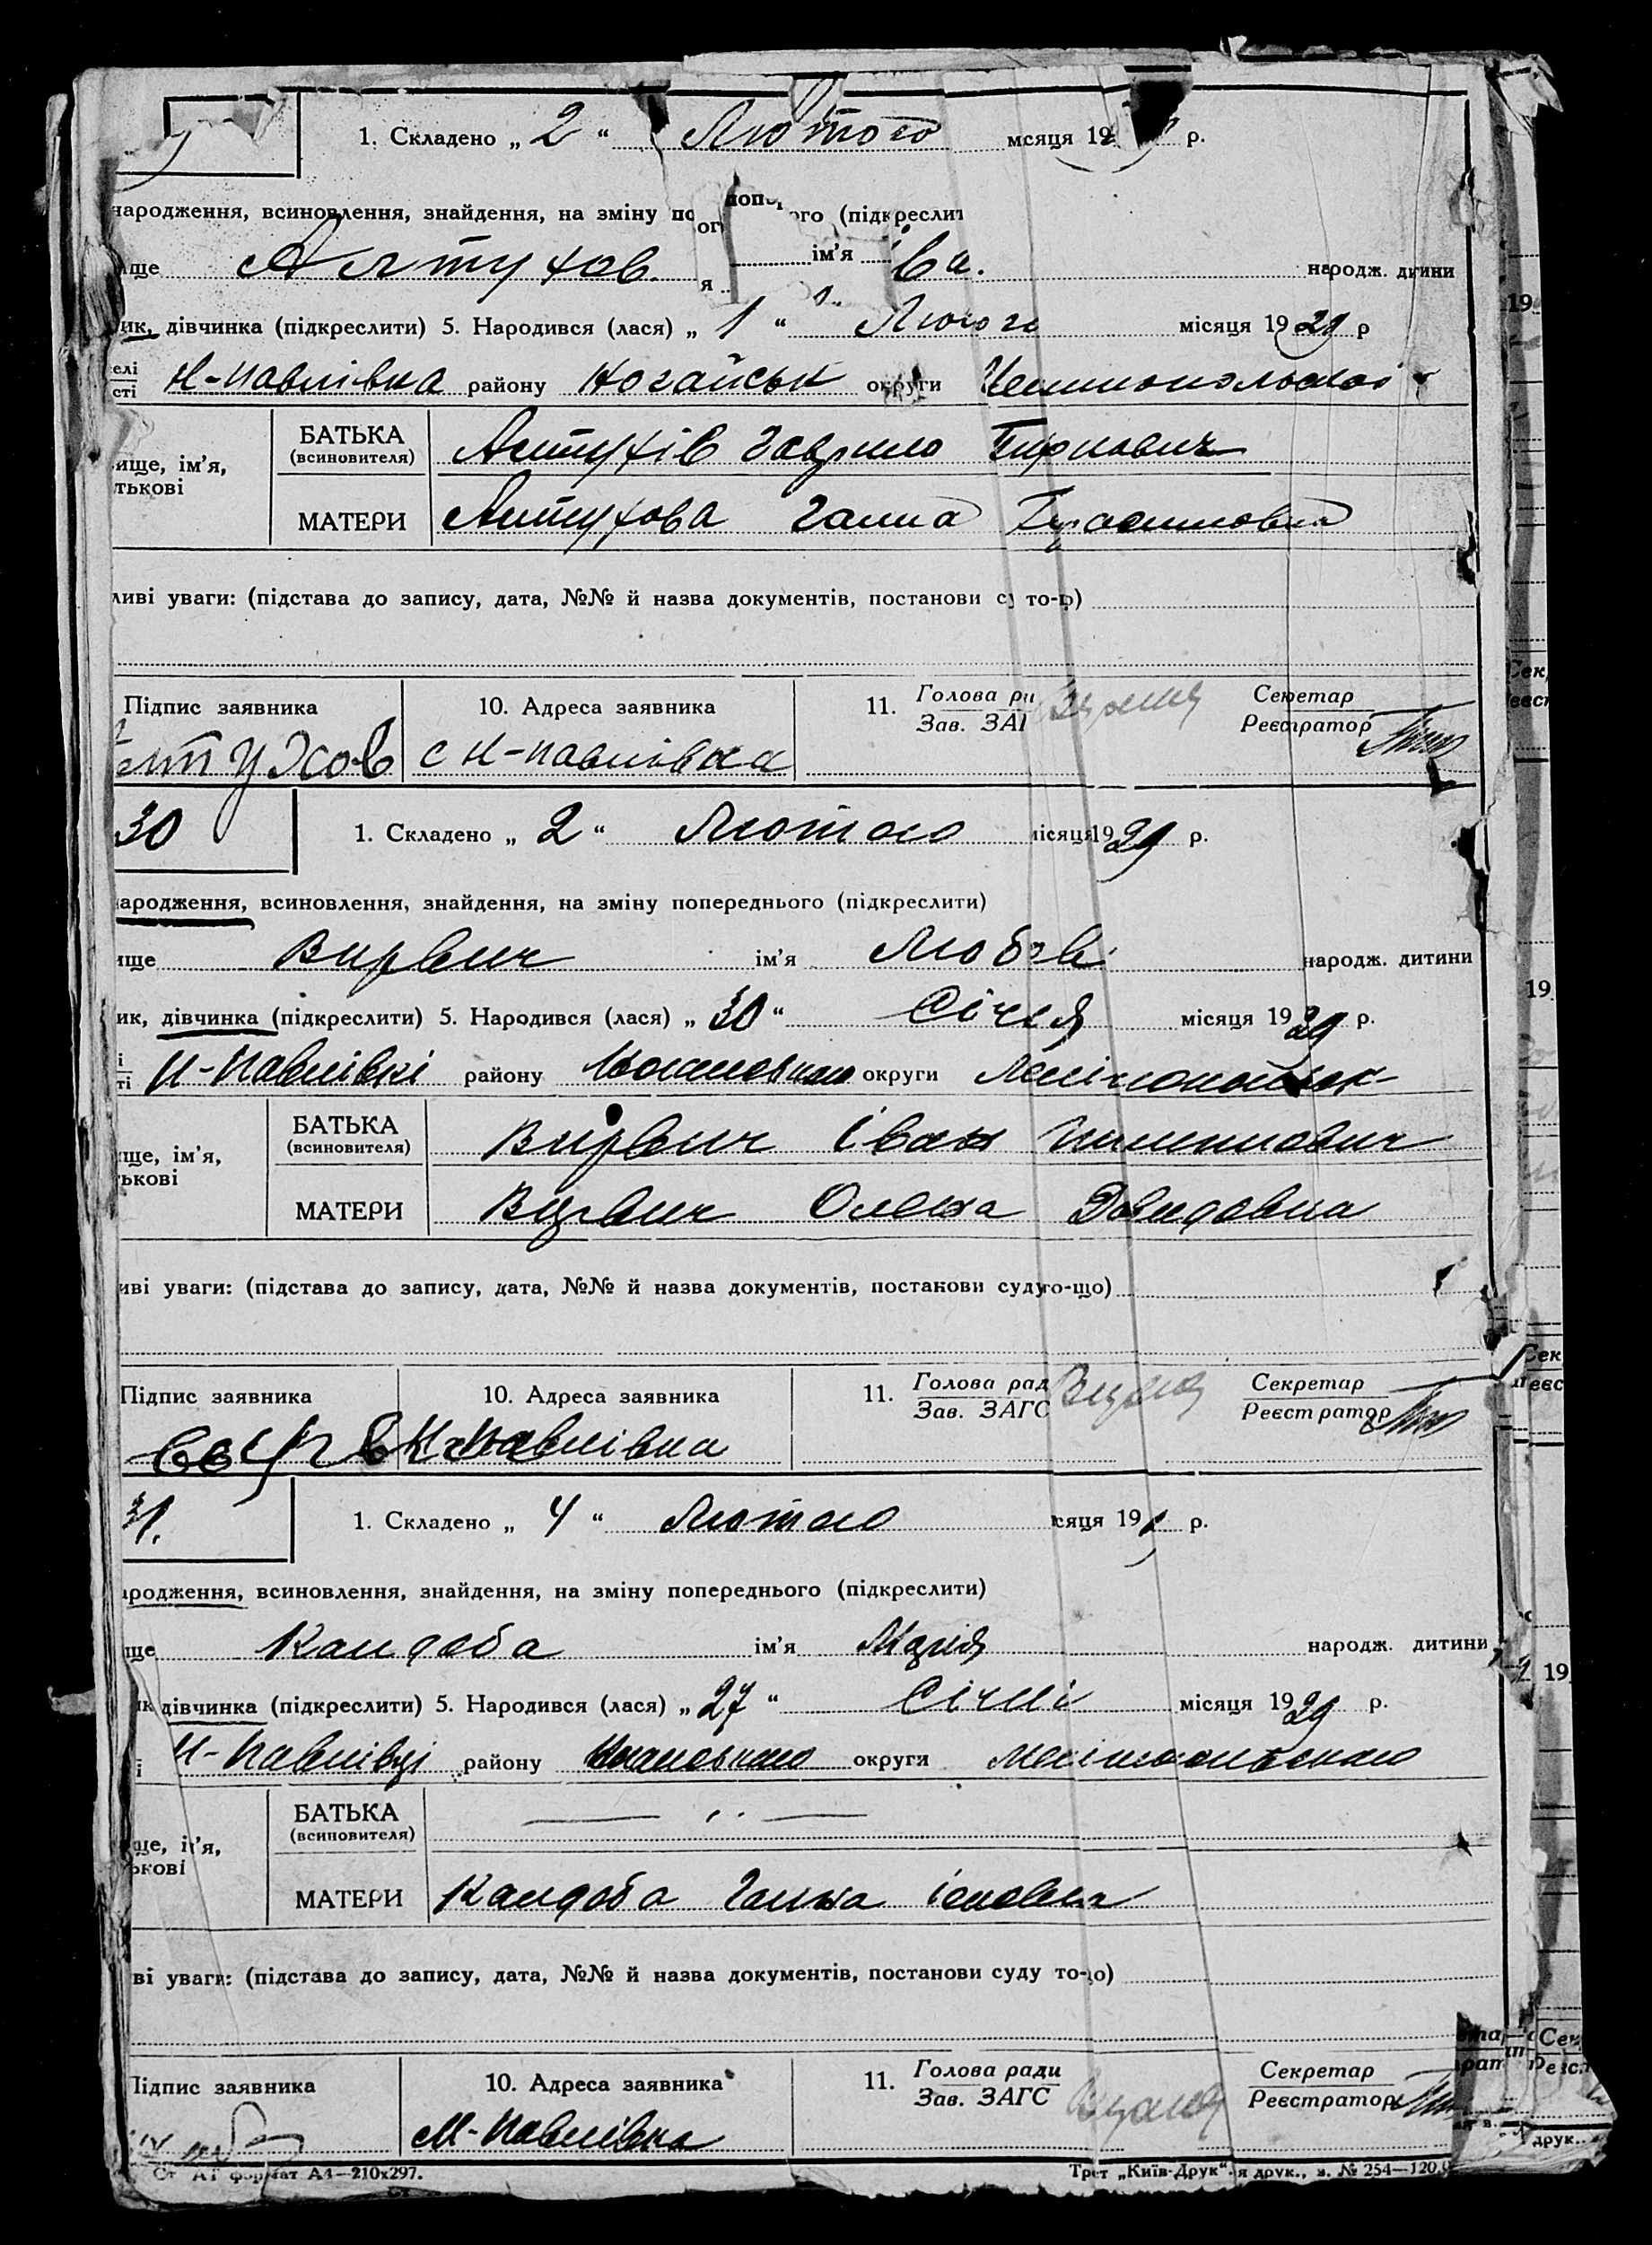 1. Складено „ 2 “ Лютого мсяця 19 р.
народження, всиновлення, знайдення, на зміну по попе ого (підкреслит
ще Алтухов. ім'я ва. народж. дитини
ик, дівчинка (підкреслити) 5. Народився (лася) „ 1 “ місяця 1929 р
елі
сті Н-Павлівка району Ногайськ округи
БАТЬКА
(всиновителя) Алтухів Гаврило
ище, ім'я,
тькові
МАТЕРИ Алтухова Ганна Герасимовна
ливі уваги: (підстава до запису, дата, №№ й назва документів, постанови су то-
Підпис заявника 10. Адреса заявника 11. Голова ри Секретар
Зав. ЗАГ Реєстратор
лтухов с Н-Павлівка
30 1. Складено „ 2 “ Лютого місяця 1929 р.
ародження, всиновлення, знайдення, на зміну попереднього (підкреслити)
ище Вирвич ім'я Любов народж. дитини
ик, дівчинка (підкреслити) 5. Народився (лася) „ 30 “ Січня місяця 1929 р.
і
ті Н-Павлівкі району округи
БАТЬКА
(всиновителя) Вирвич Іван
ще, ім'я,
ькові
МАТЕРИ Вирвич Олена Давидовна
иві уваги: (підстава до запису, дата, №№ й назва документів, постанови суду то-що)
Підпис заявника 10. Адреса заявника 11. Голова рад Секретар
Зав. ЗАГС Реєстратор
Н-Павлівка
31. 1. Складено „ 4 “ Лютого сяця 19 р.
ародження, всиновлення, знайдення, на зміну попереднього (підкреслити)
ще Кандоба ім'я Марія народж. дитини
ик дівчинка (підкреслити) 5. Народився (лася) „ 27 “ Січні місяця 1929 р.
і Н-Павлівці району округи
БАТЬКА
(всиновителя)
ще, ім'я,
ькові
МАТЕРИ Кандоба Ганна
ві уваги: (підстава до запису, дата, №№ й назва документів, постанови суду то-що)
Підпис заявника 10. Адреса заявника 11. Голова ради Секретар
Зав. ЗАГС Реєстратор
Н-Павлівка
Ст АТ формат А4—210х297. Трест „Київ-Друк“ я друк., з. № 254—120.